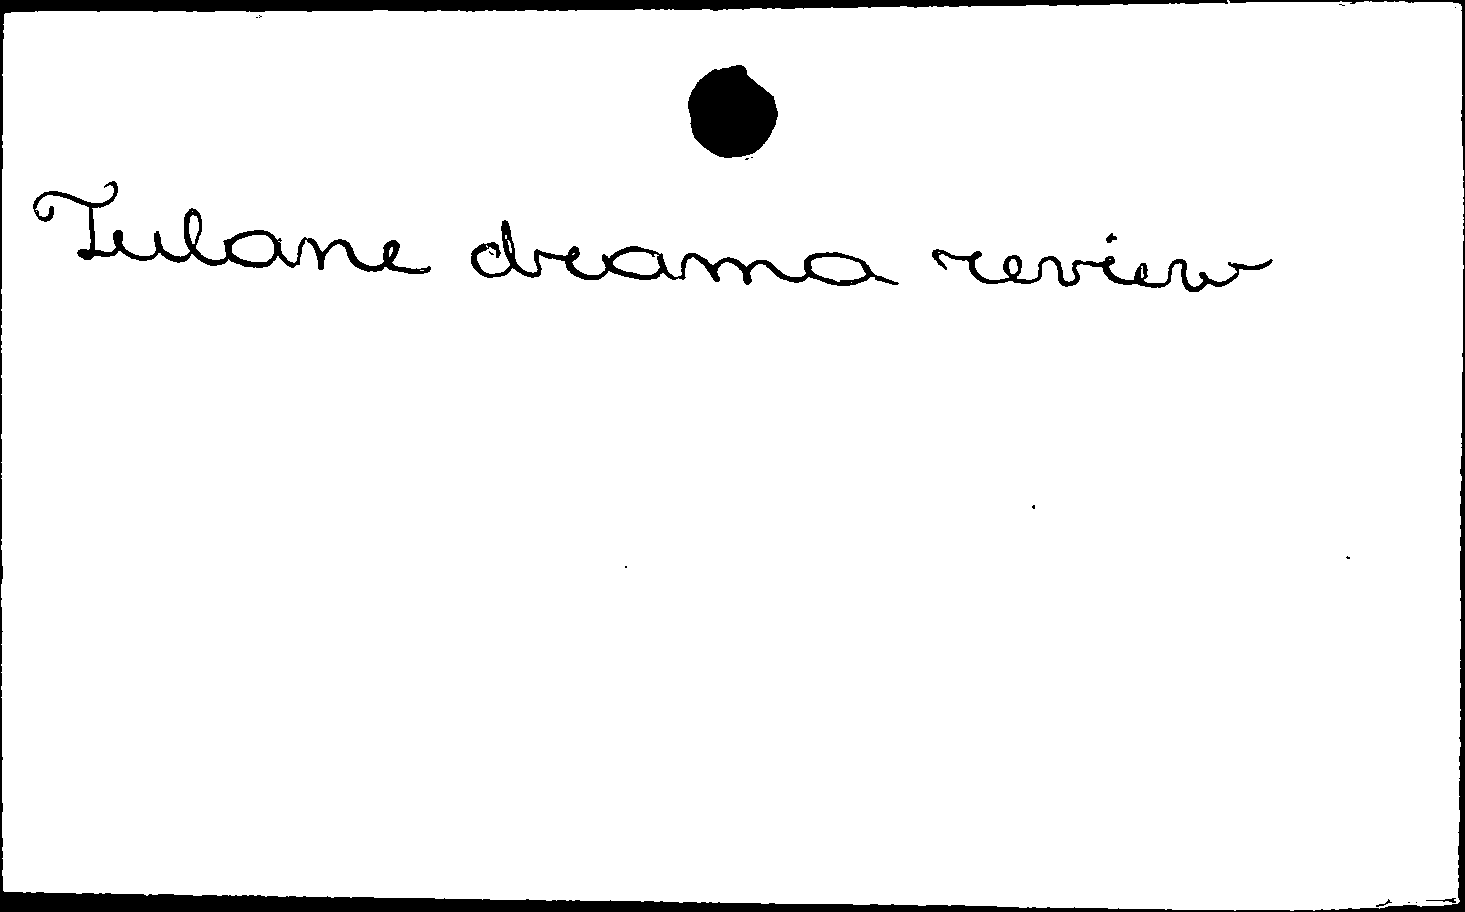 Tulane drama review